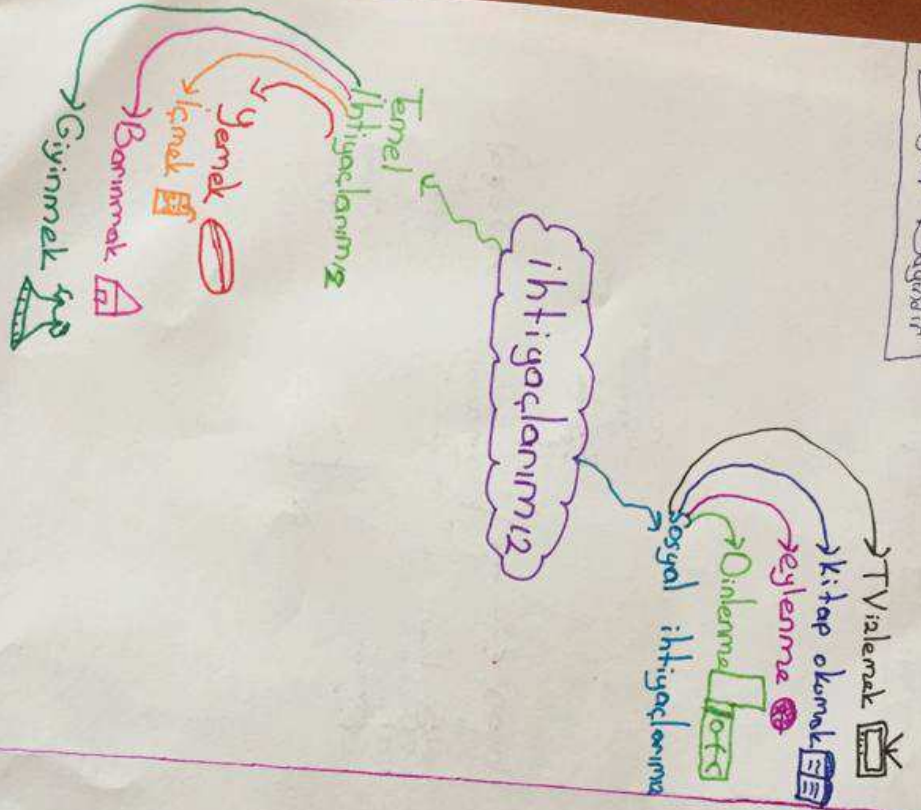 ihtiyaçlarımız
Temel
ihtiyaçlarımız
yemek
içmek
Barınmak
Giyinmek
sosyal ihtiyaçlarımız
Dinlenme
eylenme
kitap okumak
TV izlemek